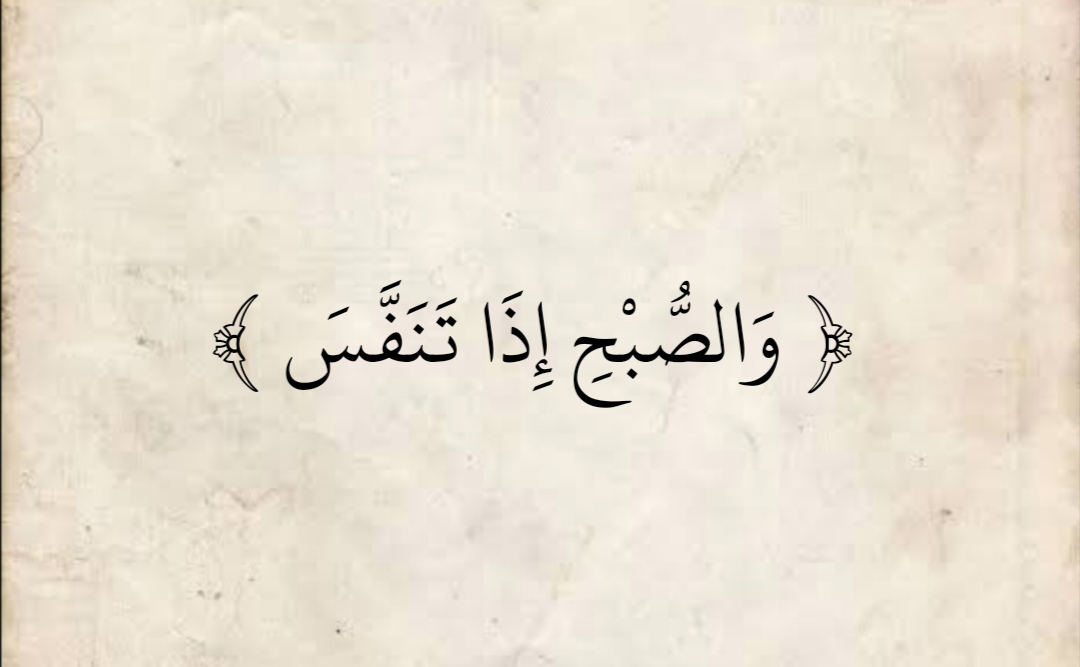 ﴿ وَالصُّبْحِ إِذَا تَنَفَّسَ ﴾